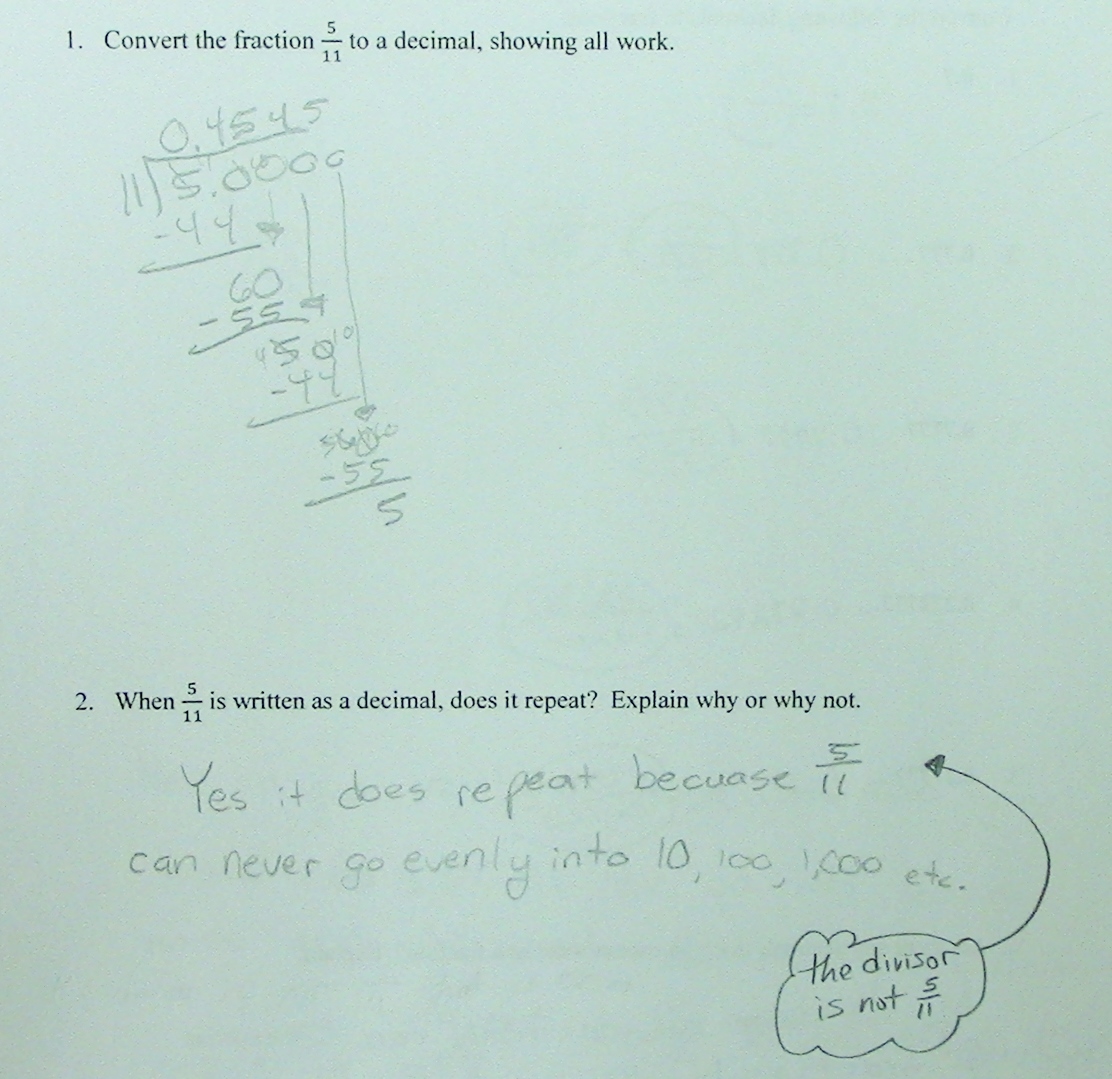 1. Convert the fraction 5/11 to a decimal, showing all work.
0.4545
11)5.0000
-44
60
-55
50
-44
60
-55
5
2. When 5/11 is written as a decimal, does it repeat? Explain why or why not.
Yes it does repeat becuase 5/11
can never go evenly into 10, 100, 1,000 etc.
the divisor
is not 5/11